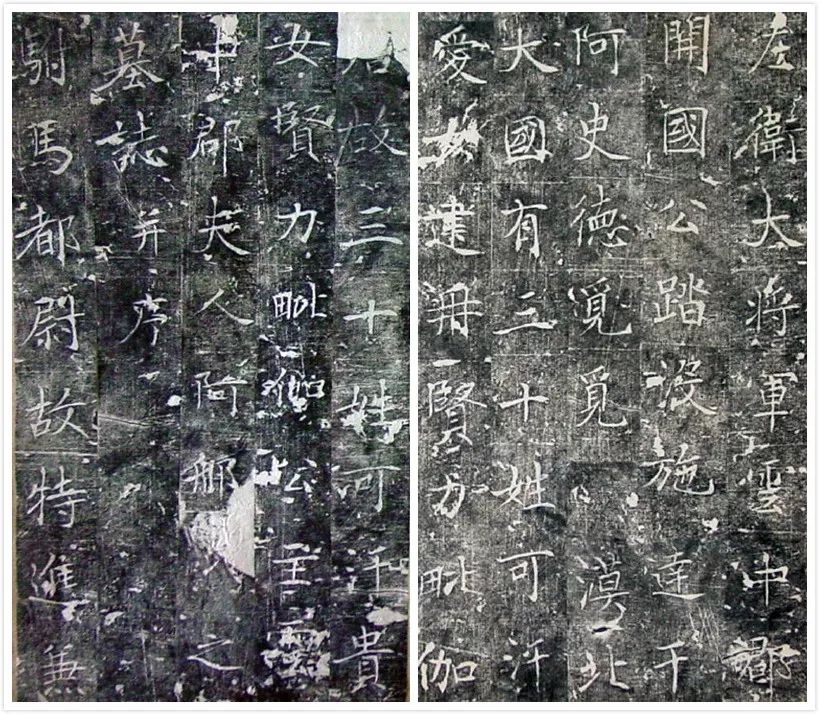 故三十姓可汗貴
女賢力毗伽公主雲
中郡夫人阿那之
墓誌并序
駙馬都尉故特進兼
左衛大將軍雲中郡
開國公踏没施達干
阿史德覓覓 漠北
大國有三十姓可汗
愛女建冊賢力毗伽